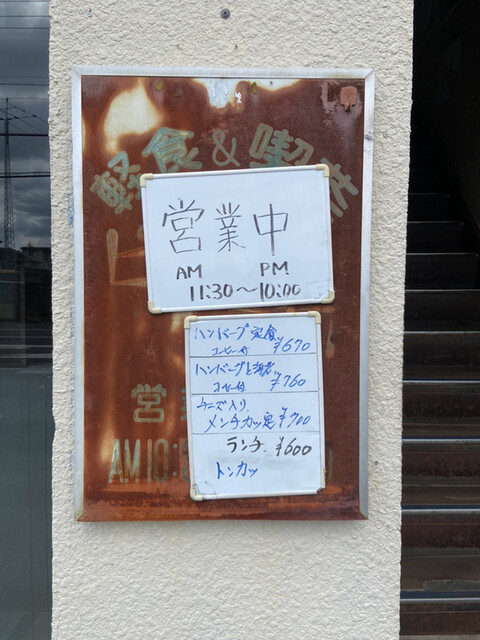 軽食&喫茶
営業中
AM PM
11:30〜10:00
ハンバーグ定食
コーヒー付 ¥670
ハンバーグと
コーヒー付 ¥760
チーズ入り
メンチカツ定 ¥700
ランチ ¥600
トンカツ
営
AM10: